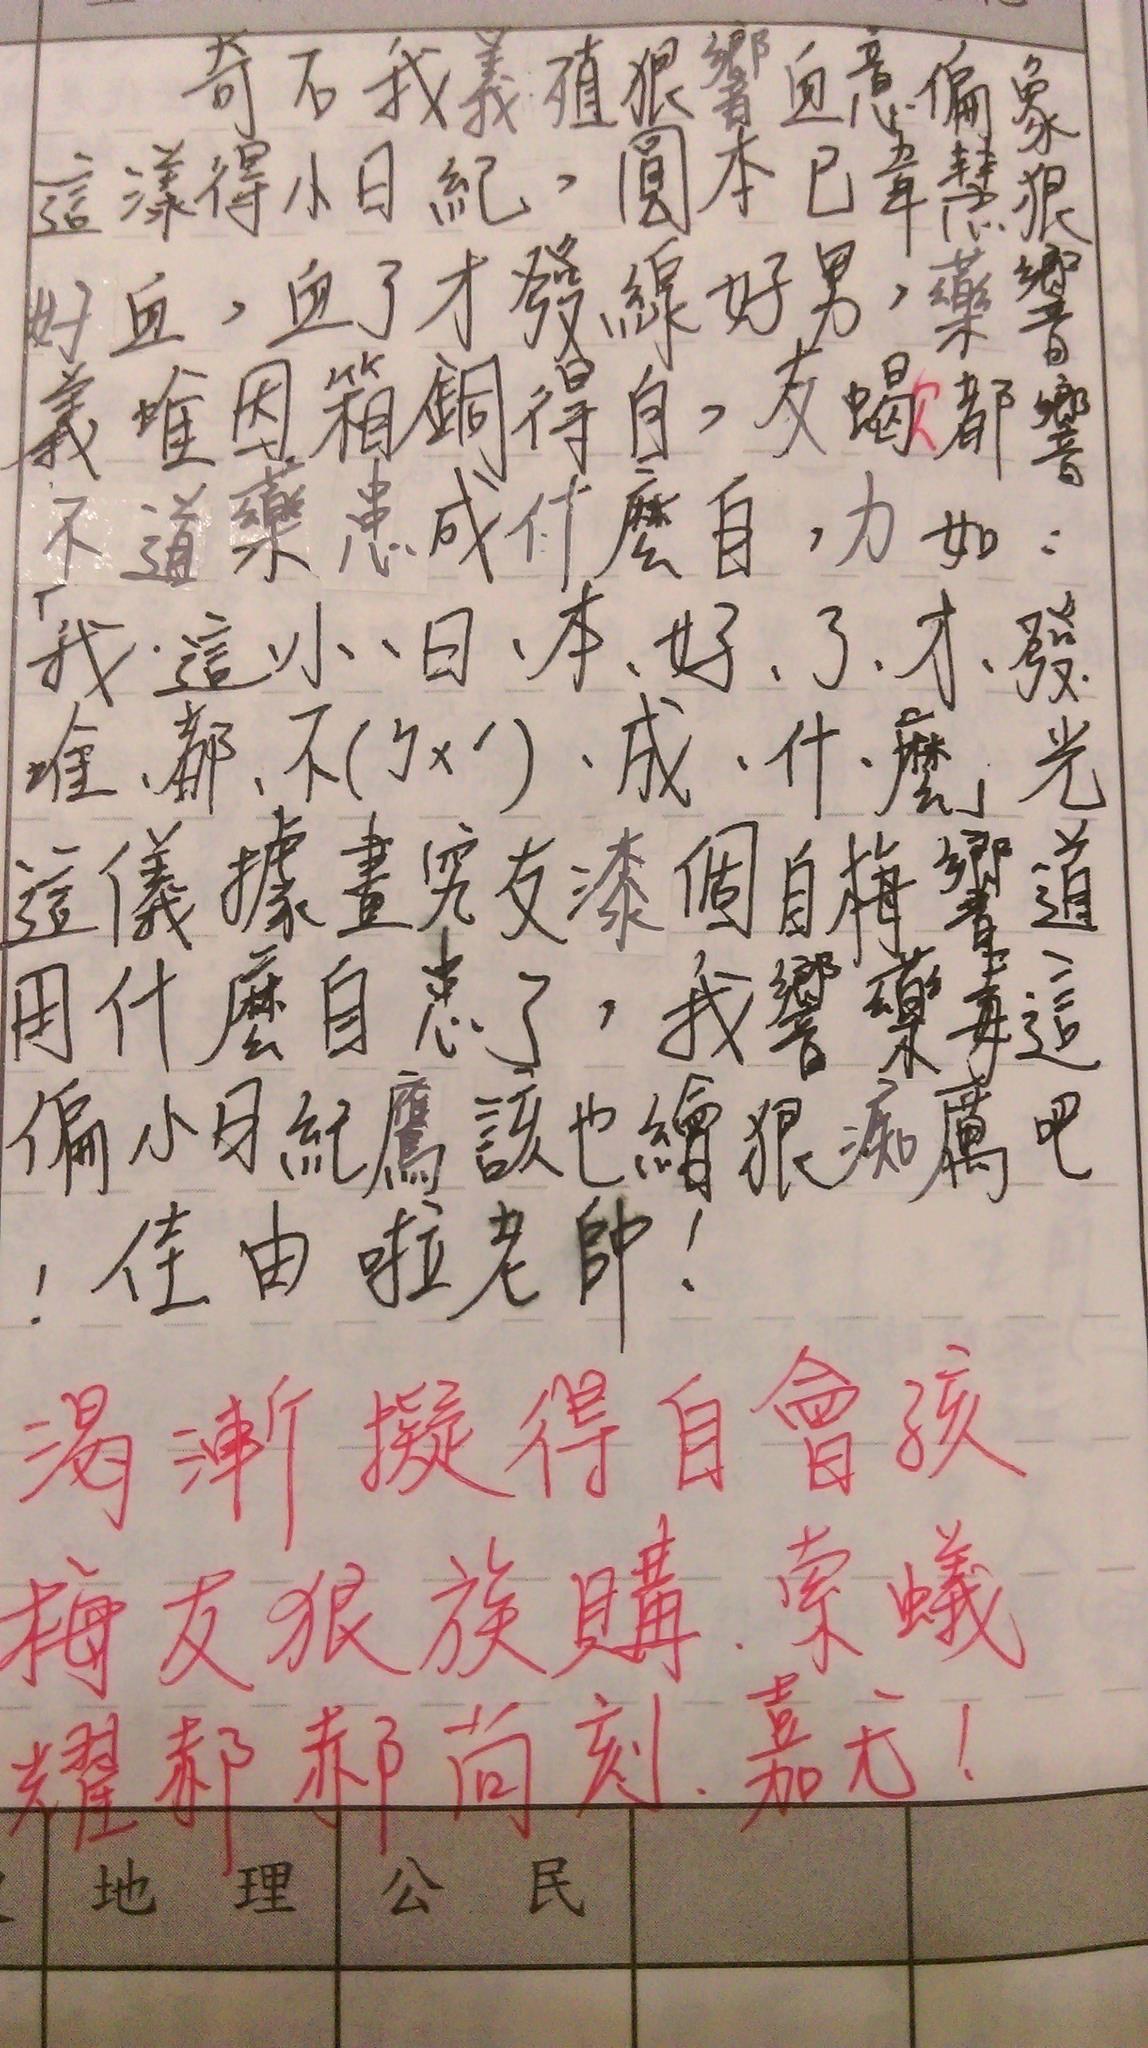 奇石我義殖狠響血意偏象
這漾得小日紀，圓本已韋慧狠
好血，血了才發線好男，藥響
義堆因箱銅得自，友蠍都響
不道藥患成什麼自，力如：
「我、這、小、日、本、好、了、才、發
堆、都、不(ㄅㄨˊ)、成、什、麼」光
這儀據畫究友漆個自梅響道
用什麼自患了，我響藥毒這
偏小日紀鷹該也繪狠痴萬吧
！佳由啦老帥！
渴漸擬得自會孩
梅友狠族購．索蟻
耀郝郝尚刻．嘉尤！
地理 公民